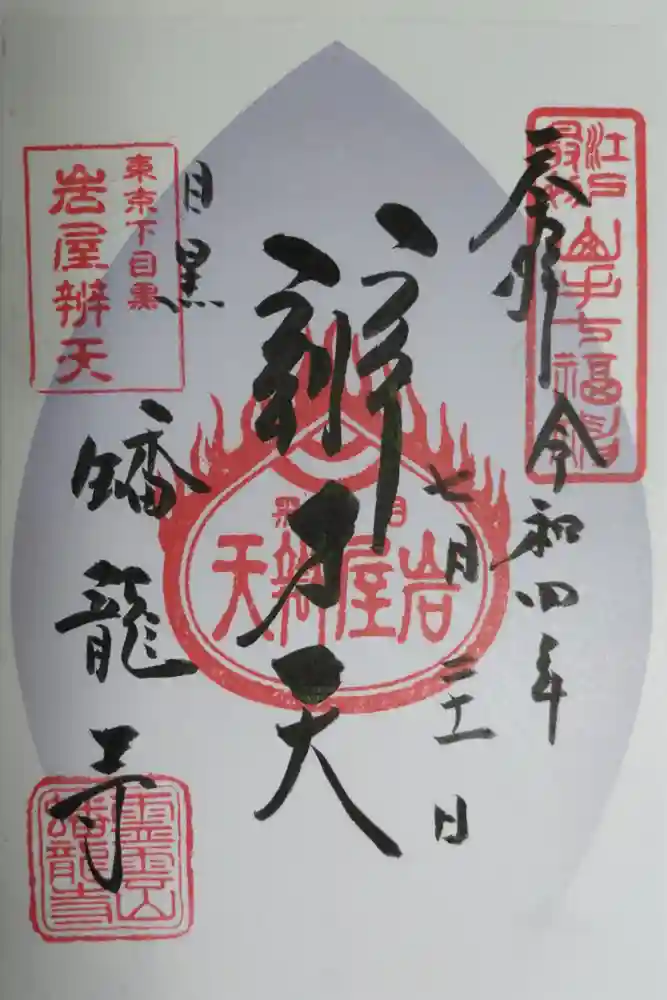 江戸最初山手七福神
奉拝
令和四年
七月二十一日
辨才天
目黒
岩屋辨天
東京下目黒
岩屋辨天
目黒
蟠龍寺
霊雲山
蟠龍寺